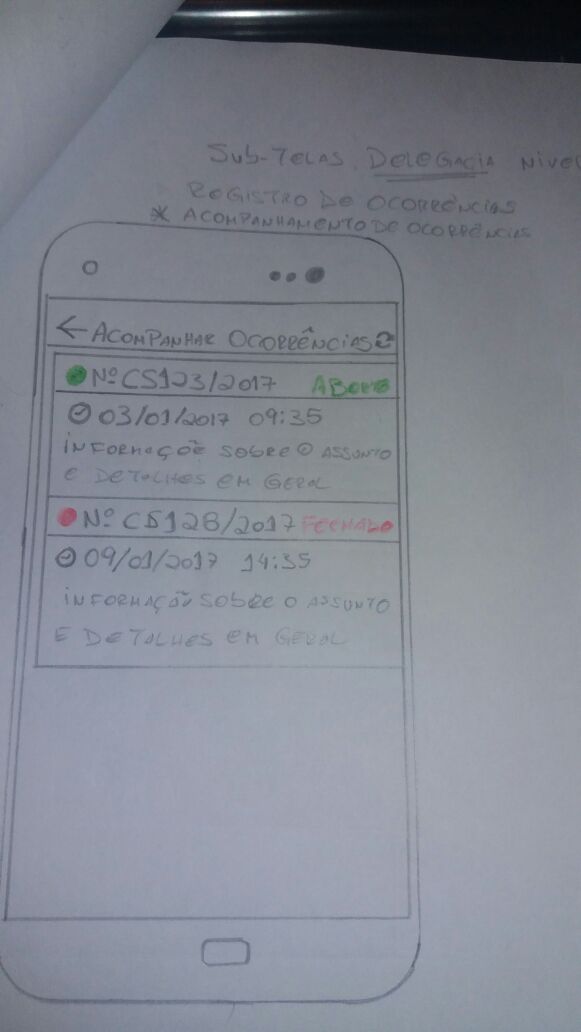 SUB-TELAS. DELEGACIA NIVEL
REGISTRO DE OCORRÊNCIAS
* ACOMPANHAMENTO DE OCORRÊNCIAS
ACOMPANHAR OCORRÊNCIAS
Nº CS123/2017 ABERTO
03/01/2017 09:35
INFORMAÇÕE SOBRE O ASSUNTO
E DETALHES EM GERAL
Nº CS128/2017 FECHADO
09/01/2017 14:35
INFORMAÇÃO SOBRE O ASSUNTO
E DETALHES EM GERAL